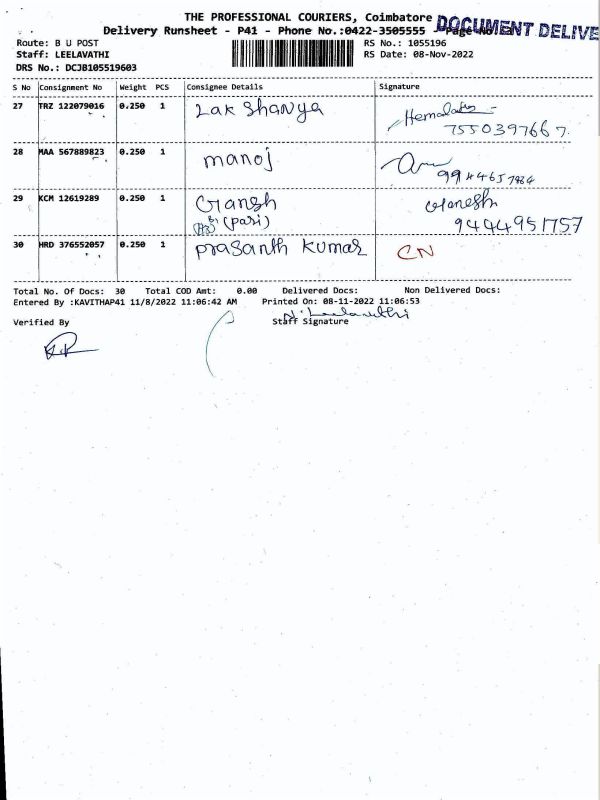 THE PROFESSIONAL COURIERS, Coimbatore
DOCUMENT DELIVE
Delivery Runsheet - P41 - Phone No.:0422-3505555 - Page No.
Route: B U POST
RS No.: 1055196
Staff: LEELAVATHI
RS Date: 08-Nov-2022
DRS No.: DCJB105519603
S No Consignment No Weight PCS Consignee Details Signature
27 TRZ 122079016 0.250 1 Lakshanya Hemalatha
7550397667.
28 MAA 567889823 0.250 1 manoj
9944657984
29 KCM 12619289 0.250 1 Gansh Ganesh
(pasi) 9444951757
30 HRD 376552057 0.250 1 prasanth kumar CN
Total No. Of Docs: 30 Total COD Amt: 0.00 Delivered Docs: Non Delivered Docs:
Entered By :KAVITHAP41 11/8/2022 11:06:42 AM Printed On: 08-11-2022 11:06:53
N. Leelavathi
Verified By Staff Signature